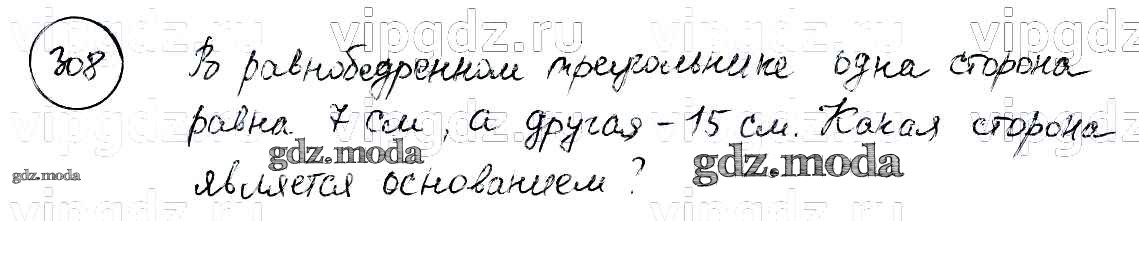 vipgdz.ru vipgdz.ru vipgdz.ru vipgdz.ru
308 В равнобедренном треугольнике одна сторона
равна 7 см, а другая – 15 см. Какая сторона
gdz.moda gdz.moda gdz.moda
является основанием?
vipgdz.ru vipgdz.ru vipgdz.ru vipgdz.ru